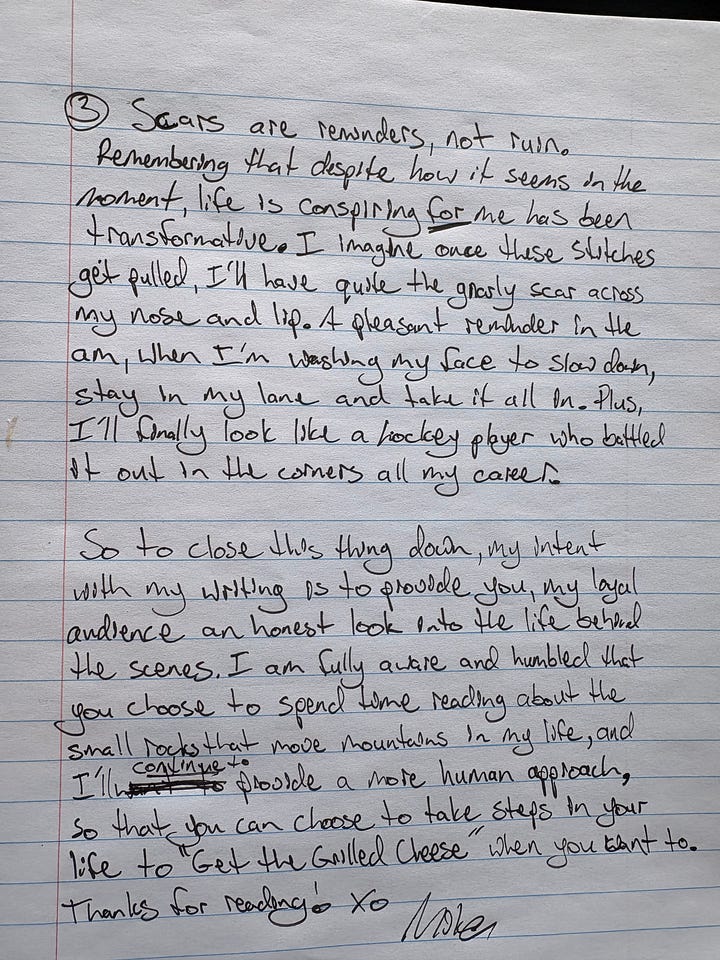 ③ Scars are reminders, not ruin.
Remembering that despite how it seems in the
moment, life is conspiring for me has been
transformative. I imagine once these stitches
get pulled, I'll have quite the gnarly scar across
my nose and lip. A pleasant reminder in the
am, when I'm washing my face to slow down,
stay in my lane and take it all in. Plus,
I'll finally look like a hockey player who battled
it out in the corners all my career.
So to close this thing down, my intent
with my writing is to provide you, my loyal
audience an honest look into the life behind
the scenes. I am fully aware and humbled that
you choose to spend time reading about the
small rocks that move mountains in my life, and
continue to
I'll provide a more human approach,
so that you can choose to take steps in your
life to "Get the Grilled Cheese" when you want to.
Thanks for reading! XO